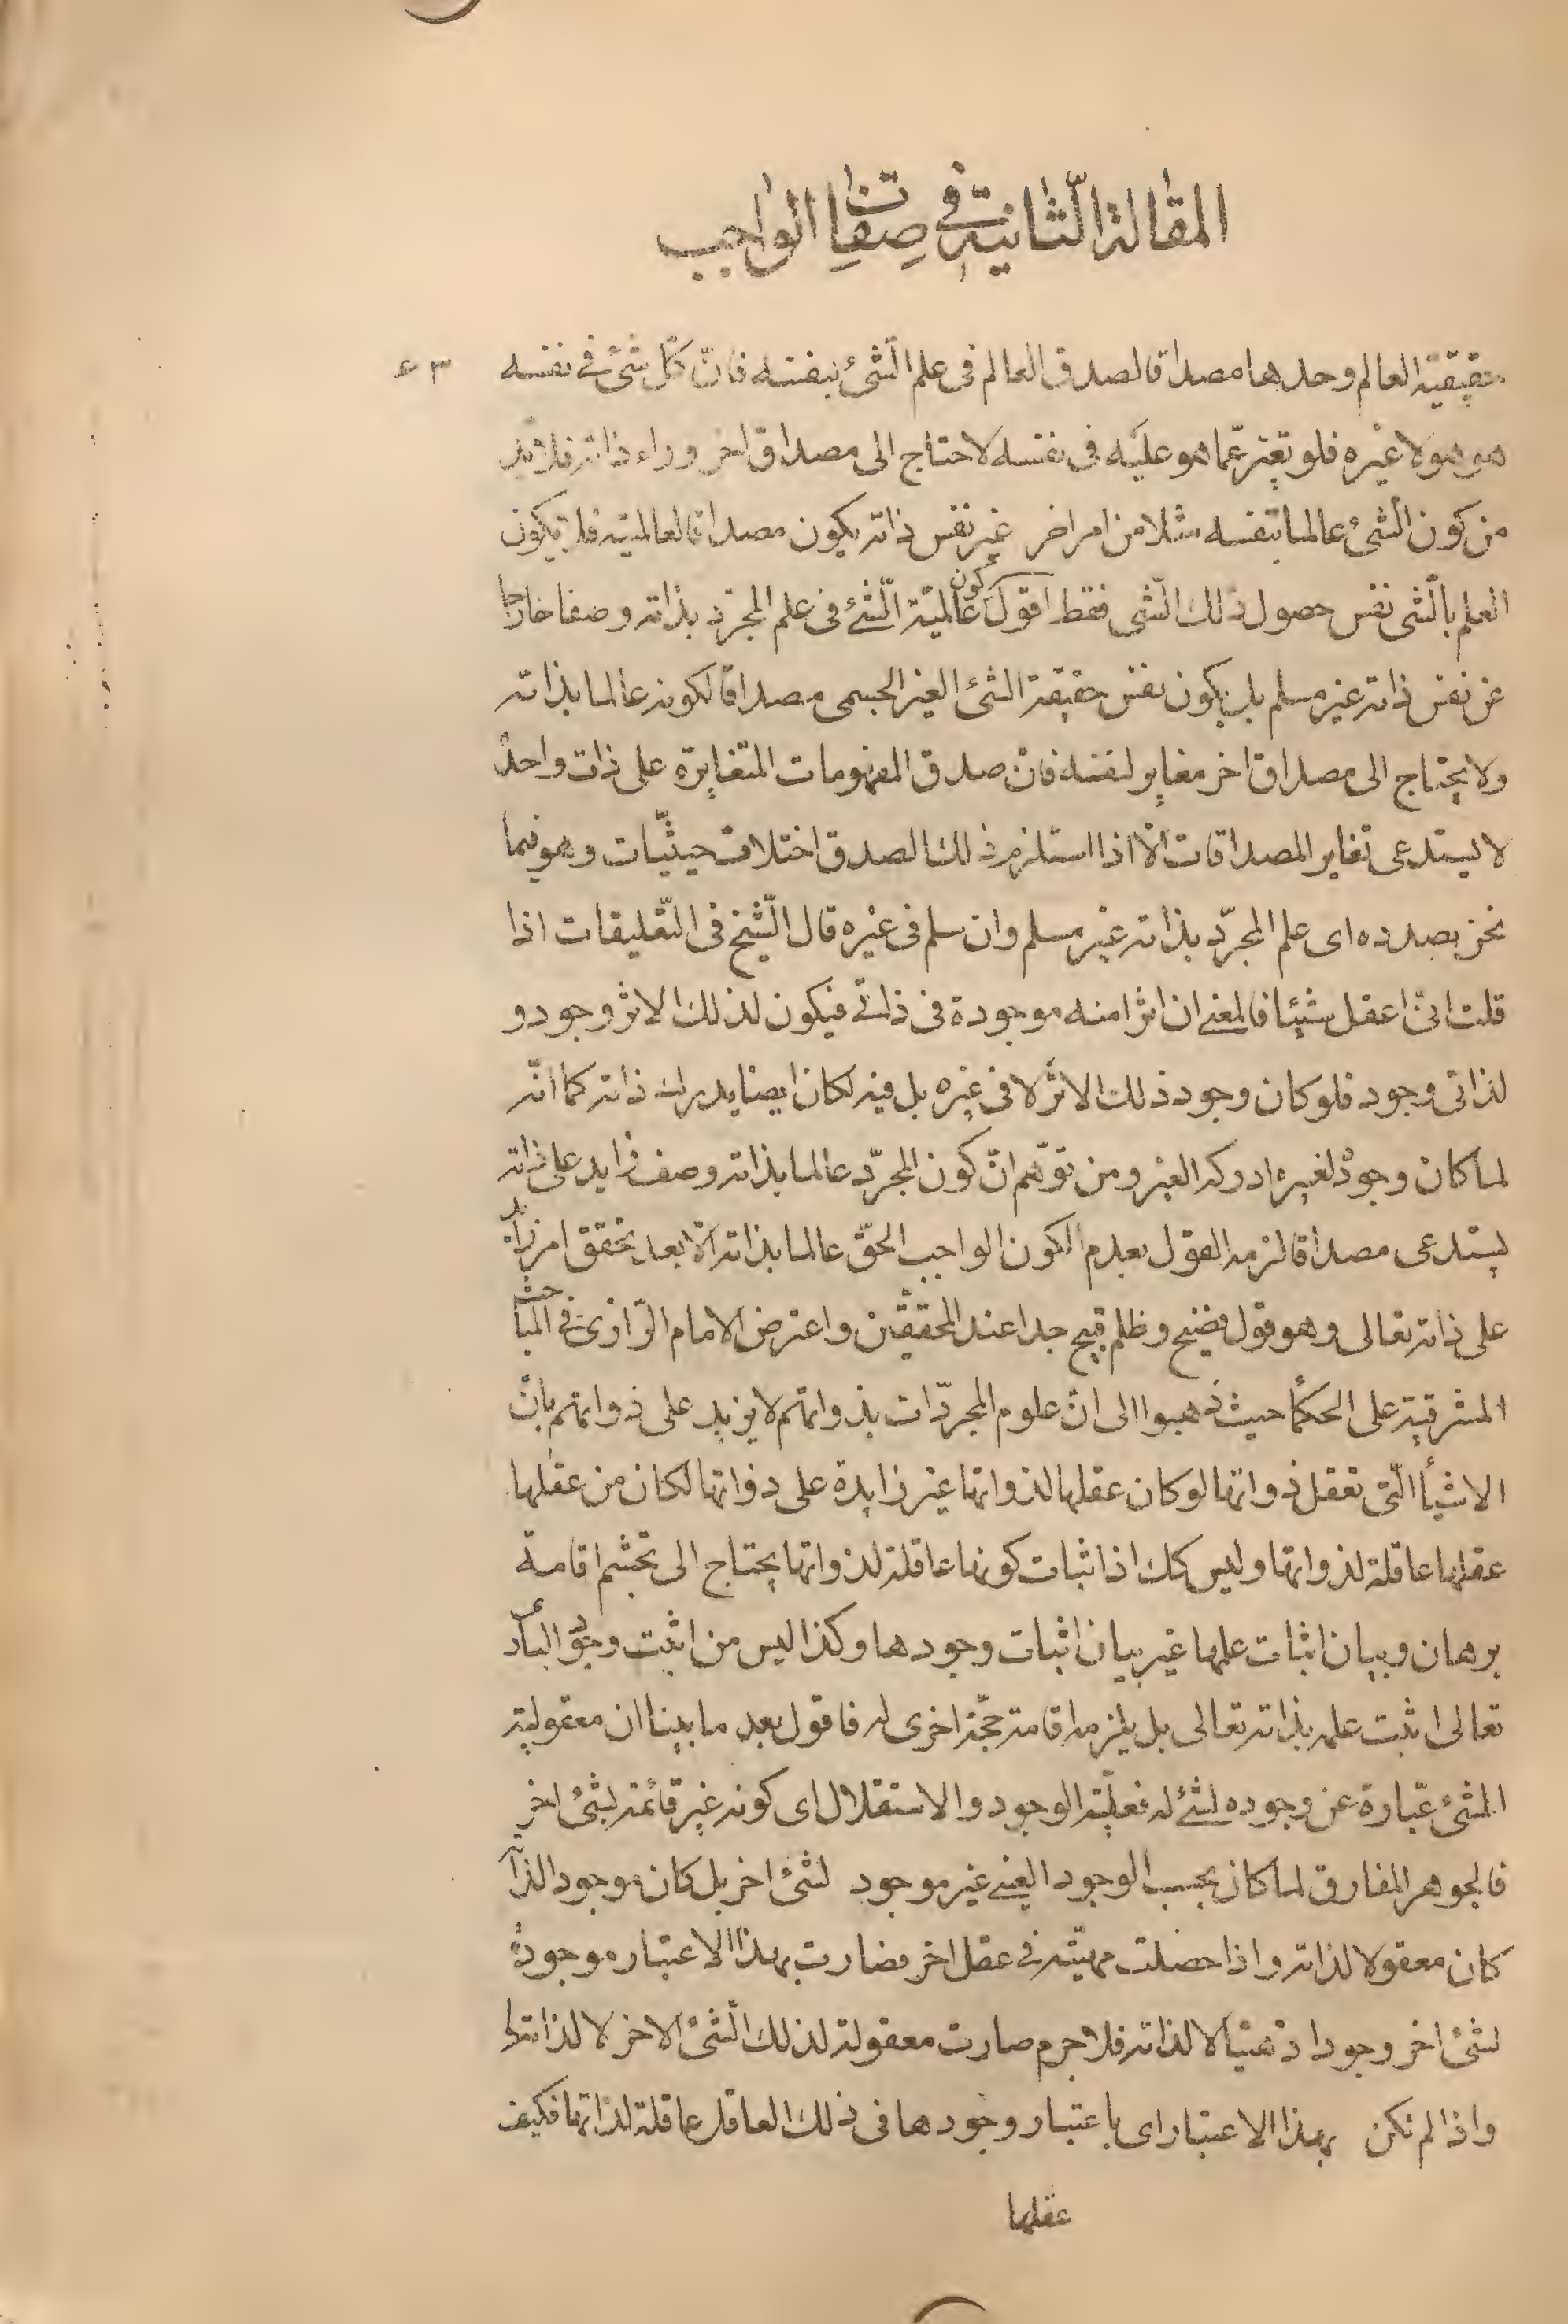 المقالة الثانية في صفات الواجب
حقيقة العالم وحدها مصداقا لصدق العالم فى علم الشئ بنفسه فانّ كلّ شئ فے نفسه ٣ع
هو هو لا غيره فلو تغير عمّا هو عليه فى نفسه لاحتاج الى مصداق اخر وراء ذاته فلا بد
من كون الشئ عالما بنفسه مثلا من امر اخر غير نفس ذاته يكون مصداقا لعالميته فلا يكون
العلم بالشى نفس حصول ذلك الشى فقط اقول كون عالمية الشئ فى علم المجرّد بذاته وصفا خارجا
عن نفس ذاته غير مسلم بل يكون نفس حقيقة الشئ الغير الجسمى مصداقا لكونه عالما بذاته
ولا يحتاج الى مصداق اخر مغاير لنفسه فانّ صدق المفهومات المتغايرة على ذات واحدة
لا يستدعى تغاير المصداقات الّا اذا استلزم ذلك الصدق اختلاف حيثيّات وهو فيما
نحن بصدده اى علم المجرّد بذاته غير مسلم وان سلم فى غيره قال الشّيخ فى التّعليقات اذا
قلت انّى اعقل شيئا فالمعنے ان اثرا منه موجودة فى ذاتے فيكون لذلك الاثر وجود و
لذاتى وجود فلو كان وجود ذلك الاثر لا فى غيره بل فيه لكان ايضا يدرك ذاته كما انّه
لما كان وجوده لغيره ادركه الغير ومن توهّم انّ كون المجرّد عالما بذاته وصف زايد على ذاته
يستدعى مصداقا لزمه القول بعدم كون الواجب الحقّ عالما بذاته الّا بعد تحقق امر زايد
على ذاته تعالى وهو قول فضيح وظلم قبيح جدا عند المحققين واعترض الامام الرّازى فے المباحث
المشرقية على الحكمأ حيث ذهبوا الى انّ علوم المجرّدات بذواتهم لا يزيد على ذواتهم بانّ
الاشيأ الّتى تعقل ذواتها لو كان عقلها لذواتها غير زايدة على ذواتها لكان من عقلها
عقلها عاقلة لذواتها وليس كك اذ اثبات كونها عاقلة لذواتها يحتاج الى تجشم اقامة
برهان وبيان اثبات علمها غير بيان اثبات وجودها وكذا ليس من اثبت وجود البارى
تعالى اثبت علمه بذاته تعالى بل يلزمه اقامة حجّة اخرى له فاقول بعد ما بينا ان معقولية
الشئ عبارة عن وجوده لشئے له فعليّة الوجود والاستقلال اى كونه غير قائمة بشئ اخر
فالجوهر المفارق لما كان بحسب الوجود العينے غير موجود لشئ اخر بل كان موجودا لذاته
كان معقولا لذاته واذا حصلت مهيّته فے عقل اخر فصارت بهذا الاعتبار موجودة
لشئ اخر وجودا ذهنيّا لا لذاته فلا جرم صارت معقولة لذلك الشئ الاخر لا لذاتها
واذا لم تكن بهذا الاعتبار اى باعتبار وجودها فى ذلك العاقل عاقلة لذاتها فكيف
عقلها